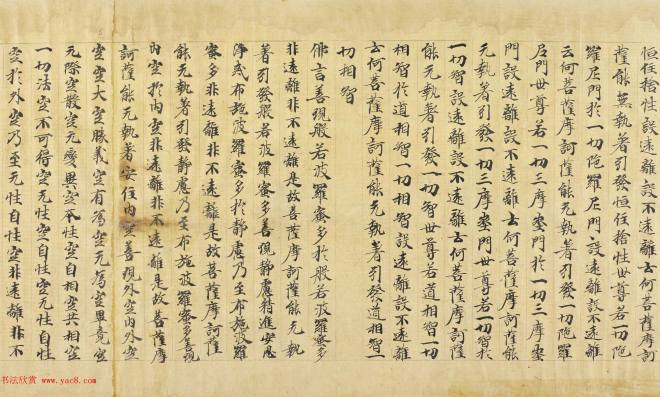 恒住捨性設遠離設不遠離云何菩薩摩訶
薩能無執著引發恒住捨性世尊若一切陀
羅尼門於一切陀羅尼門設遠離設不遠離
云何菩薩摩訶薩能无執著引發一切陀羅
尼門世尊若一切三摩地門於一切三摩地
門設遠離設不遠離云何菩薩摩訶薩能
元執著引發一切三摩地門世尊若一切智於
一切智設遠離設不遠離云何菩薩摩訶薩
能无執著引發一切智世尊若道相智一切
相智於道相智一切相智設遠離設不遠離
云何菩薩摩訶薩能无執著引發道相智一
切相智
佛言善現般若波羅蜜多於般若波羅蜜多
非遠離非不遠離是故菩薩摩訶薩能元執
著引發般若波羅蜜多善現靜慮精進安忍
淨戒布施波羅蜜多於靜慮乃至布施波羅
蜜多非遠離非不遠離是故菩薩摩訶薩
能无執著引發靜慮乃至布施波羅蜜多善現
內空於內空非遠離非不遠離是故菩薩摩
訶薩能元執著安住內空善現外空內外空
空空大空勝義空有為空无為空畢竟空
无際空散空无變異空本性空自相空共相空
一切法空不可得空无性空自性空无性自性
空於外空乃至无性自性空非遠離非不
书法欣赏 www.yac8.com